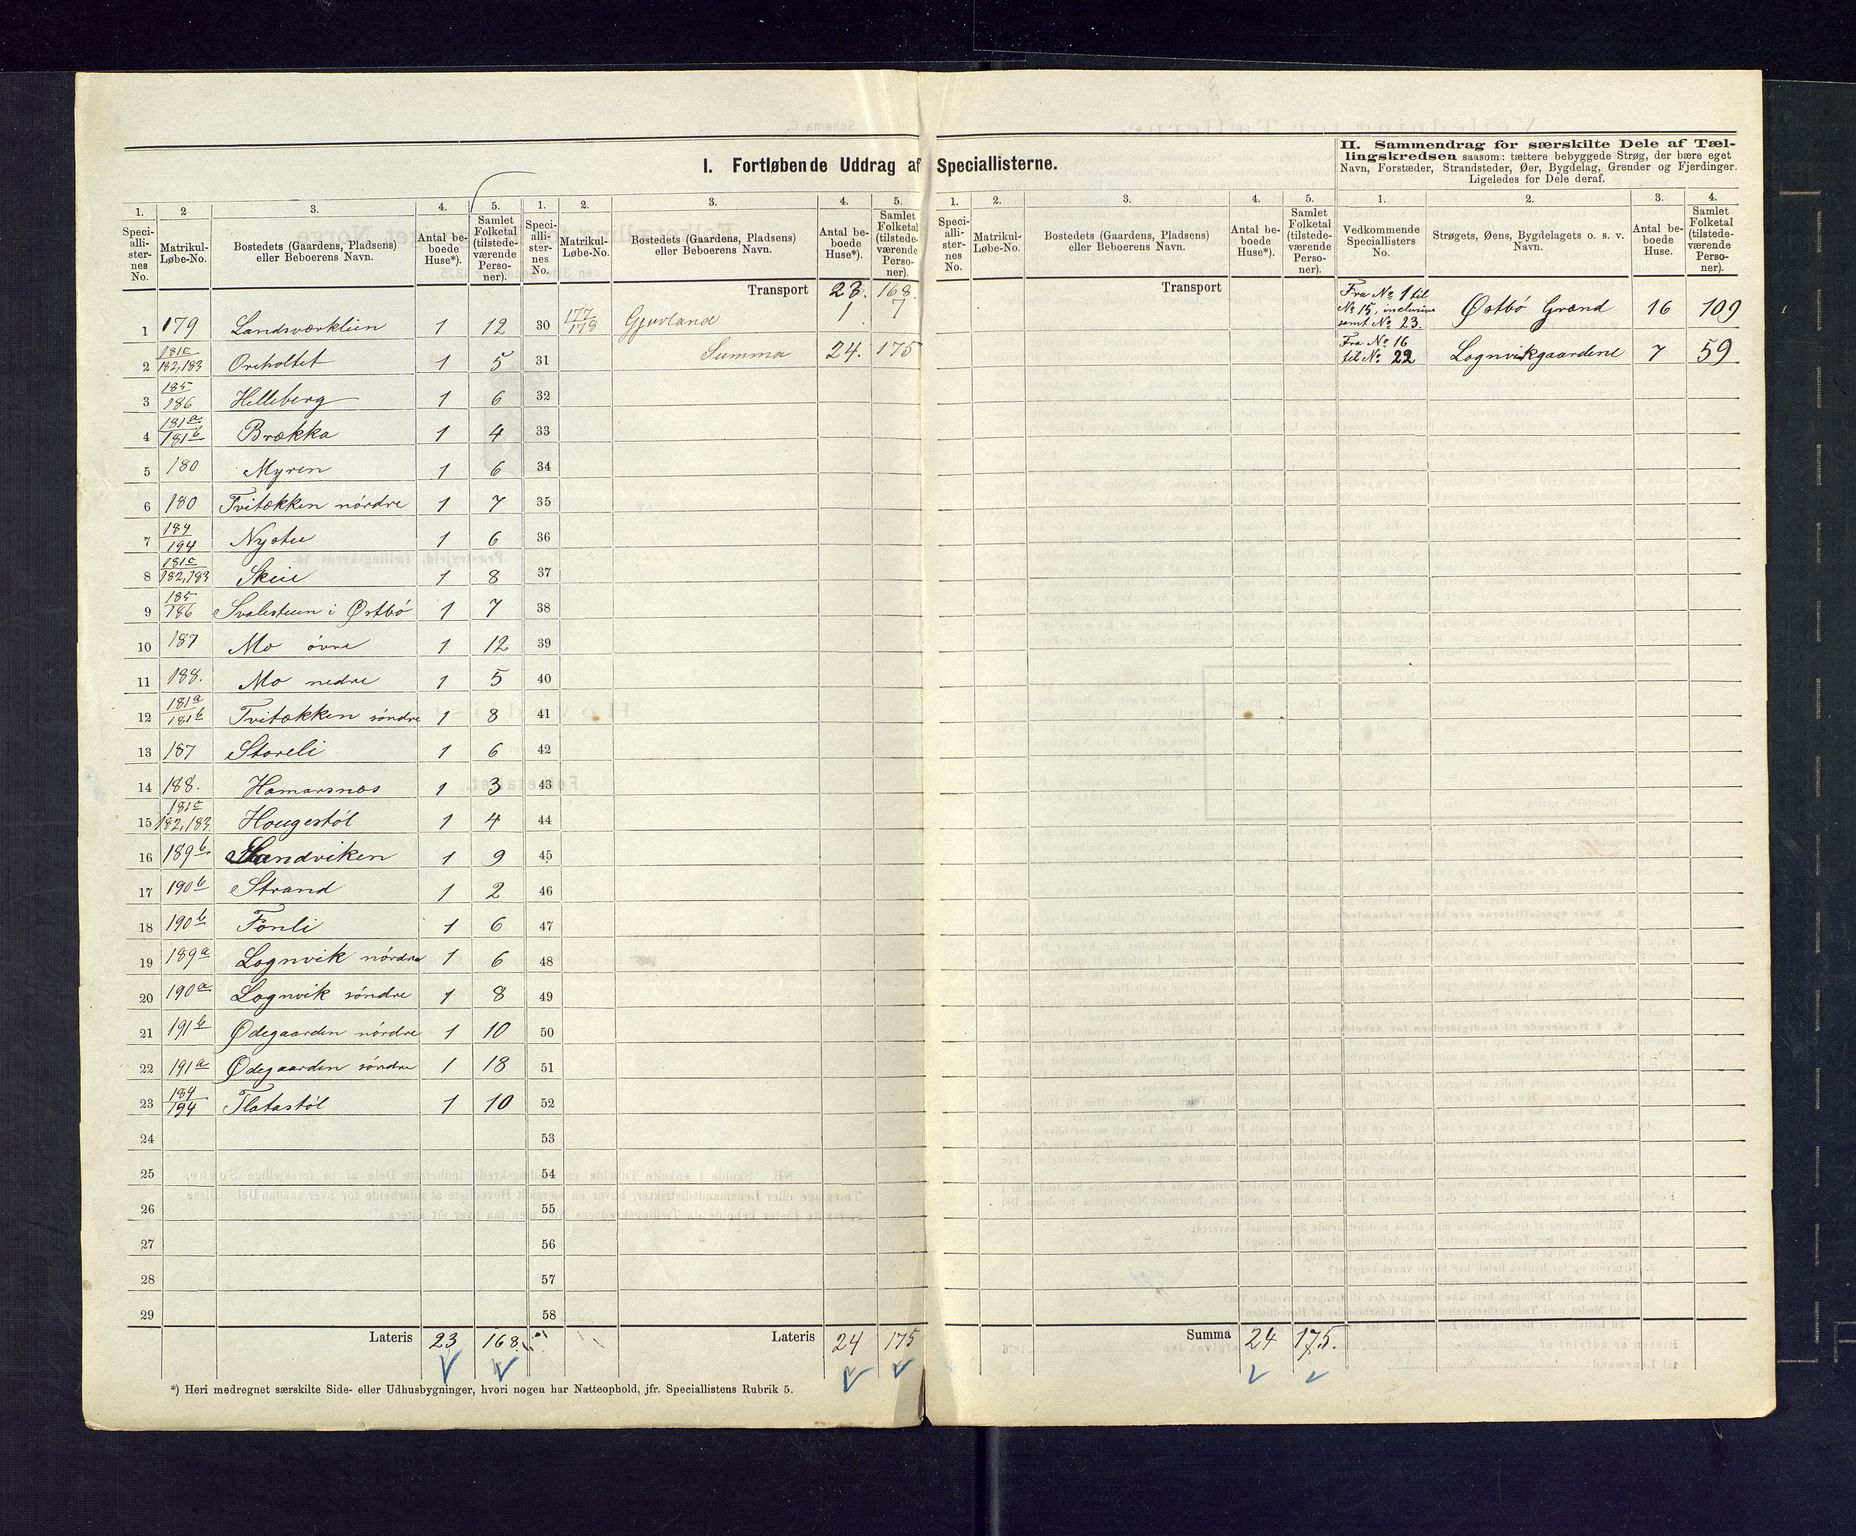 I. Fortløbende Uddrag af Speciallisterne.
II. Sammendrag for særskilte Dele af Tællingskredsen saasom: tættere bebyggede Strøg, der bære eget
Navn, Forstæder, Strandsteder, Øer, Bygdelag, Grender og Fjerdinger.
Ligeledes for Dele deraf.
1. 2 3. 4. 5. 1. 2. 3. 4. 5. 1. 2. 3. 4. 5. 1. 2. 3. 4.
Speciallisternes No. Matrikul-Løbe-No. Bostedets (Gaardens, Pladsens) eller Beboerens Navn. Antal beboede Huse*). Samlet Folketal (tilstedeværende Personer).
Speciallisternes No. Matrikul-Løbe-No. Bostedets (Gaardens, Pladsens) eller Beboerens Navn. Antal beboede Huse*). Samlet Folketal (tilstedeværende Personer).
Speciallisternes No. Matrikul-Løbe-No. Bostedets (Gaardens, Pladsens) eller Beboerens Navn. Antal beboede Huse*). Samlet Folketal (tilstedeværende Personer).
Vedkommende Speciallisters No. Strøgets, Øens, Bygdelagets o. s. v. Navn. Antal beboede Huse. Samlet Folketal (tilstedeværende Personer).
1 179 Landsværklien 1 12
2 181c 182,183 Oreholtet 1 5
3 185/186 Helleberg 1 6
4 181a/181b Brække 1 4
5 180 Myren 1 6
6 180 Tvitækken nórdre 1 7
7 184/194 Nystu 1 6
8 181c 182,183 Skeie 1 8
9 185/186 Svalesteen i Østbó 1 7
10 187 Mo óvre 1 12
11 188. Mo nedre 1 5
12 181a/181b Tvitækken sóndre 1 8
13 187 Storeli 1 6
14 188. Hamarsnæs 1 3
15 181c 182,183. Hougestól 1 4
16 189b Sandviken 1 9
17 190b Strand 1 2
18 190b Fonli 1 6
19 189a Lognvik nórdre 1 6
20 190a Lognvik sóndre 1 8
21 191b Ødegaarden nórdre 1 10
22 191a Ødegaarden sóndre 1 18
23 184/194 Flatastól 1 10
24
25
26
27
28
29
Lateris 23 168.
Transport 23. 168.
30 177/178 Gjuvland 1 7
31 Summa 24. 175
32
33
34
35
36
37
38
39
40
41
42
43
44
45
46
47
48
49
50
51
52
53
54
55
56
57
58
Lateris 24 175
Transport
Summa 24 175.
Fra No 1 til No 15, inclusive samt No 23. Østbó Grænd 16 109
Fra No 16 til No 22 Lognvikgaardene 7 59
*) Heri medregnet særskilte Side- eller Udhusbygninger, hvori nogen har Natteophold, jfr. Speciallistens Rubrik 5.